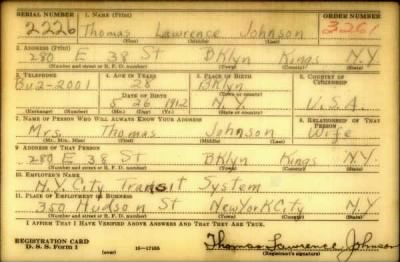 SERIAL NUMBER 1. NAME (Print) ORDER NUMBER
2226 Thomas Lawrence Johnson 3261
(First) (Middle) (Last)
2. ADDRESS (Print)
280 E 38 St BKlyn Kings N.Y.
(Number and street or R. F. D. number) (Town) (County) (State)
3. TELEPHONE 4. AGE IN YEARS 5. PLACE OF BIRTH 6. COUNTRY OF CITIZENSHIP
Bu2-2001 28 BKlyn
DATE OF BIRTH (Town or county)
8 26 1912 N.Y. U.S.A.
(Exchange) (Number) (Mo.) (Day) (Yr.) (State or country)
7. NAME OF PERSON WHO WILL ALWAYS KNOW YOUR ADDRESS 8. RELATIONSHIP OF THAT PERSON
Mrs. Thomas Johnson Wife
(Mr., Mrs., Miss) (First) (Middle) (Last)
9. ADDRESS OF THAT PERSON
280 E 38 St BKlyn Kings N.Y.
(Number and street or R. F. D. number) (Town) (County) (State)
10. EMPLOYER'S NAME
N.Y. City Transit System
11. PLACE OF EMPLOYMENT OR BUSINESS
350 Hudson St New York City N.Y.
(Number and street or R. F. D. number) (Town) (County) (State)
I AFFIRM THAT I HAVE VERIFIED ABOVE ANSWERS AND THAT THEY ARE TRUE.
REGISTRATION CARD
D. S. S. Form 1 (over) 16-17105 Thomas Lawrence Johnson
(Registrant's signature)